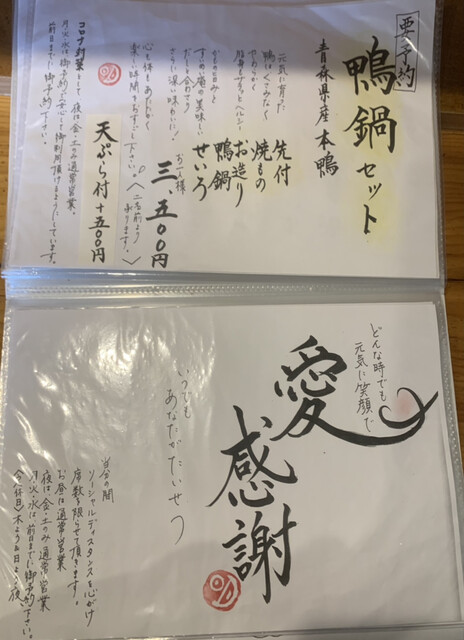 要予約
鴨鍋セット
青森県産 本鴨
元気に育った
鴨はくさみなく
やわらかく
脂もすっとヘルシー
かものお肉と
すゞめ庵の美味しい
だしと合わさり
さらに深い味わいに!
心も体もあたゝかく
楽しい時間をおすごし下さい。
先付
焼もの
お造り
鴨鍋
せいろ
お一人様
三、五〇〇円
(二名前より
承ります。)
天ぷら付+五〇〇円
コロナ対策として 夜は金・土のみ通常営業、
月・火・水は御予約にて安心して御利用頂けるようにしています。
前日までに御予約下さい。
どんな時でも
元気に笑顔で
愛
感謝
いつでも
あなたがたいせつ
当分の間
ソーシャルディスタンスを心がけ
席数を限らせて頂きます。
お昼は通常営業
夜は金・土のみ通常営業
月・火・水は前日までに御予約下さい。